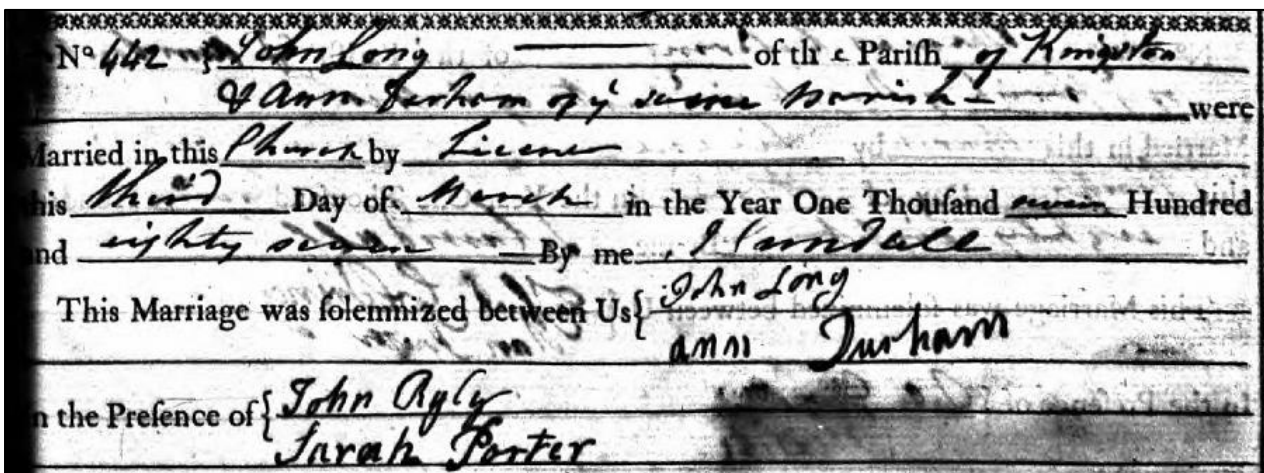 Nº 442 { John Long of the Pariſh of Kingston
& Ann Durham of yͤ same Parish were
Married in this Church by Licence
this third Day of March in the Year One Thouſand seven Hundred
and eighty seven By me J Cundall
This Marriage was ſolemnized between Us { John Long
ann Durham
n the Preſence of { John Ryly
Sarah Porter